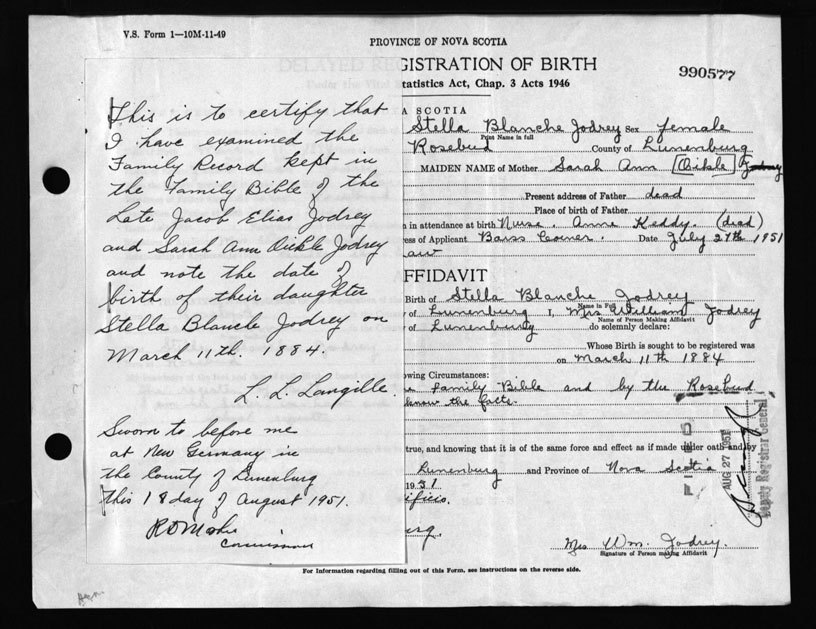 V.S. Form 1—10M-11-49
PROVINCE OF NOVA SCOTIA
DELAYED
GISTRATION OF BIRTH
tatistics Act, Chap. 3 Acts 1946
990577
This is to certify that
I have examined the
Family Record kept in
the Family Bible of the
Late Jacob Elias Jodrey
and Sarah Ann Oickle Jodrey
and note the date of
birth of their daughter
Stella Blanche Jodrey on
March 11th. 1884.
L. L. Langille.
Sworn to before me
at New Germany in
the County of Lunenburg
this 18 day of August 1951.
A SCOTIA
Stella Blanche Jodrey Sex female
Print Name in full
Rosebud County of Lunenburg
MAIDEN NAME of Mother Sarah Ann [Oikle] Jodrey
Present address of Father dead
Place of birth of Father
n in attendance at birth Nurse. Anne Keddy. (dead)
ess of Applicant Barss Corner. Date July 27th 1951
aw
FFIDAVIT
Birth of Stella Blanche Jodrey
Name in Full
of Lunenburg I, Mrs William Jodrey
Name of Person Making Affidavit
of Lunenburg do solemnly declare:
Whose Birth is sought to be registered was
on March 11th 1884
owing Circumstances:
e Family Bible and by the Rosebud
know the facts.
true, and knowing that it is of the same force and effect as if made under oath and by
Lunenburg and Province of Nova Scotia
1951
ificio.
urg.
FILED
AUG 27 1951
Deputy Registrar General
Mrs Wm. Jodrey.
Signature of Person making Affidavit
For Information regarding filling out of this Form, see instructions on the reverse side.